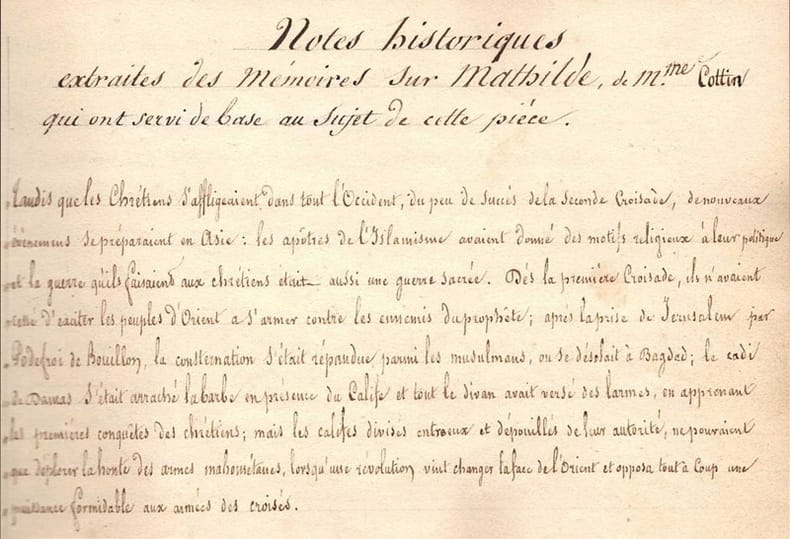 Notes historiques
extraites des Mémoires sur Mathilde, de M.me Cottin
qui ont servi de base au Sujet de cette piéce.
Tandis que les Chrétiens s'affligeaient, dans tout l'Occident, du peu de succès de la seconde Croisade, de nouveaux
événemens se préparaient en Asie : les apôtres de l'Islamisme avaient donné des motifs religieux à leur politique
et la guerre qu'ils faisaient aux chrétiens etait aussi une guerre sacrée. Dés la premiére Croisade, ils n'avaient
cessé d'exciter les peuples d'Orient a s'armer contre les ennemis du prophête ; après la prise de Jerusalem par
Godefroi de Bouillon, la consternation s'était répandue parmi les musulmans, on se désolait à Bagdad ; le cadi
de Damas s'était arraché la barbe en présence du Calife et tout le divan avait versé des larmes, en apprenant
les premiéres conquêtes des chrétiens ; mais les califes divisés entr'eux et dépouillés de leur autorité, ne pouvaient
que déplorer la honte des armes mahométanes, lorsqu'une révolution vint changer la face de l'Orient et opposa tout à Coup une
puissance formidable aux armées des croisés.